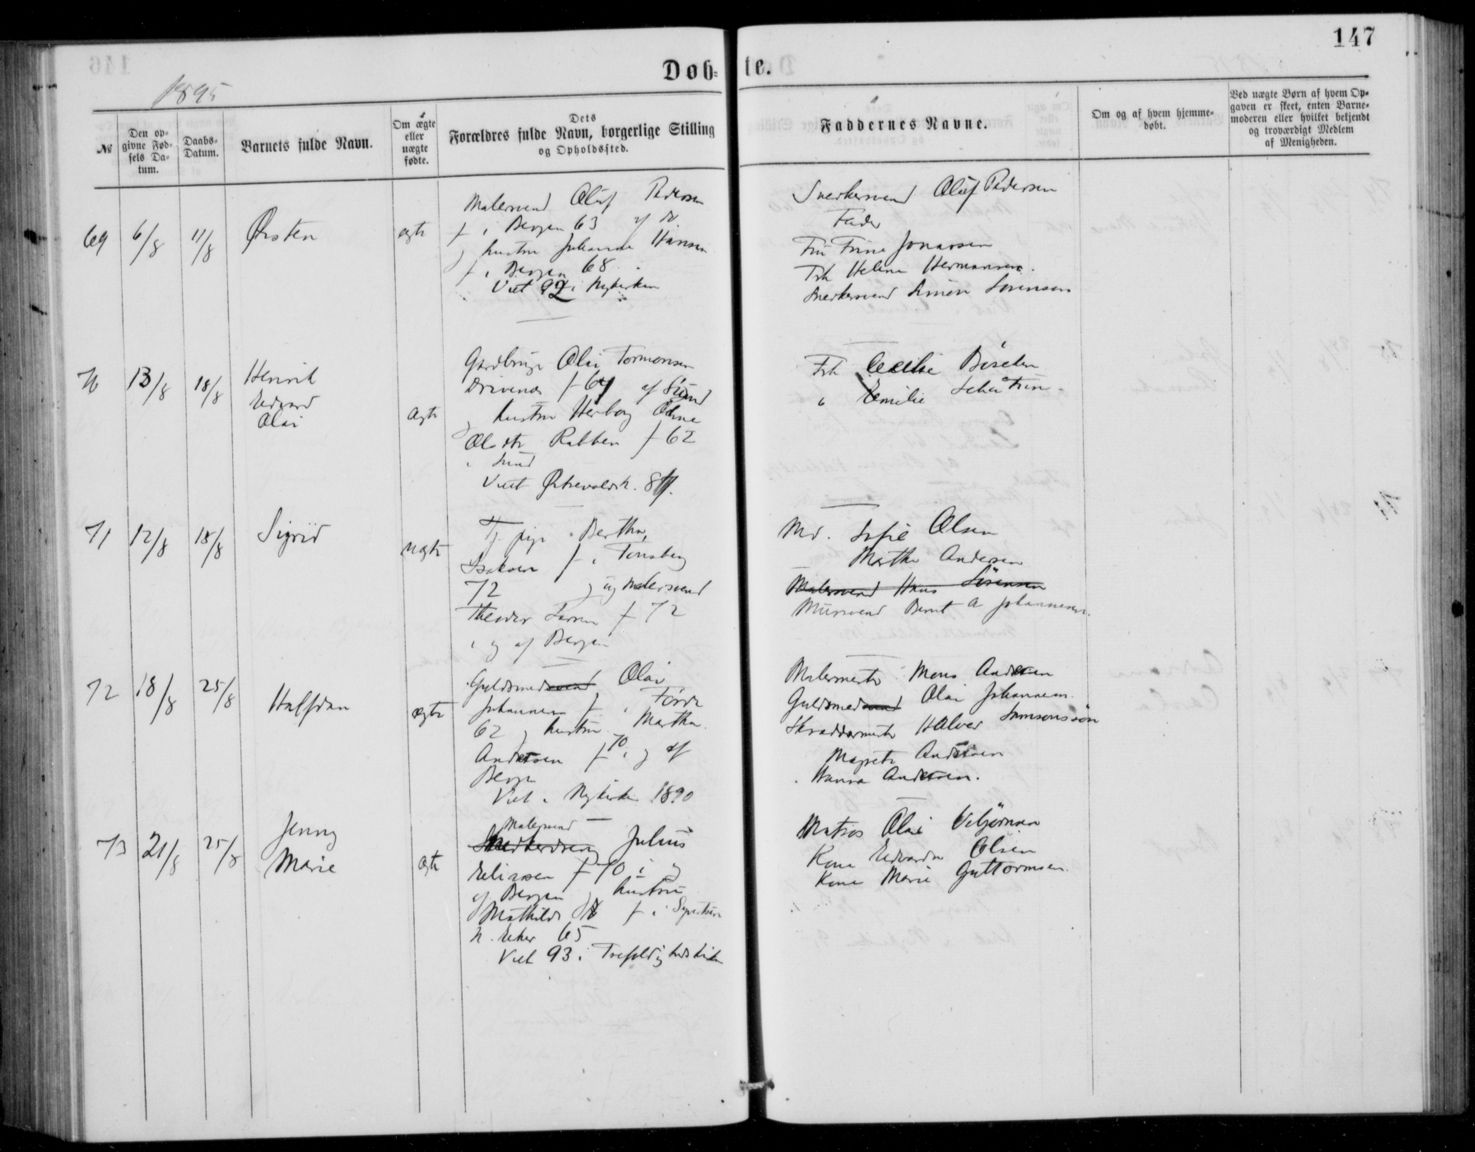 147
Døb=
te.
1895
№
Den op-
givne Fød-
sels Da-
tum.
Daabs-
Datum.
Barnets fulde Navn.
Om ægte
eller
uægte
fødte.
Dets
Forældres fulde Navn, borgerlige Stilling
og Opholdssted.
Faddernes Navne.
Om og af hvem hjemme-
døbt.
Ved uægte Børn af hvem Op-
gaven er skeet, enten Barne-
moderen eller hvilket bekjendt
og troværdigt Medlem
af Menigheden.
69
6/8
11/8
Øisten
ægte
Malersvend Oluf Pedersen
f i Bergen 63
hustru Johanne Hansen
f i Bergen 68
Viet 92 i Nykirken
Snerkersvend Oluf Pedersen
Fader
Fru Trine Jonassen
Frk Helene Hermansen.
Snerkersvend Simon Sørensen
70
13/8
18/8
Henrik
Edvard
Olai
ægte
Olai Tormonsen
f 64 af Sund
hustru Herborg Anne
Rabben f 62
i Sund
Viet 84.
Frk Cecilie
" Emilie
71
12/8
18/8
Sigrid
uægte
Tj. pige Bertha
Isaksen f i Tønsberg
72 og ug Malersvend
Theodor Larsen f 72
i og af Bergen
Md. Sofie Olsen
Martha Andersen
Malersvend Hans Sørensen
Murersvend Bernt A Johannesen.
72
18/8
25/8
Halfdan
ægte
Guldsmedsvend Olai
Johannesen f i Førde
62 og hustru Martha
Andersen f 70 i og af
Bergen
Viet i Nykirken 1890
Malermester Mons Andersen
Guldsmedsvend Olai Johannesen
Skræddermester Halvor Samsonssøn
Magrete Andersen
Hanna Andersen.
73
21/8
25/8
Jenny
Marie
ægte
Malersvend
Snedkersvend Julius
Eliassen f 70 i og
af Bergen og hustru
Mathilde f i
N. Eker 65
Viet 93 i Trefoldighedskirken
Matros Olai
Kone Edvarda Olsen
Kone Marie Guttormsen